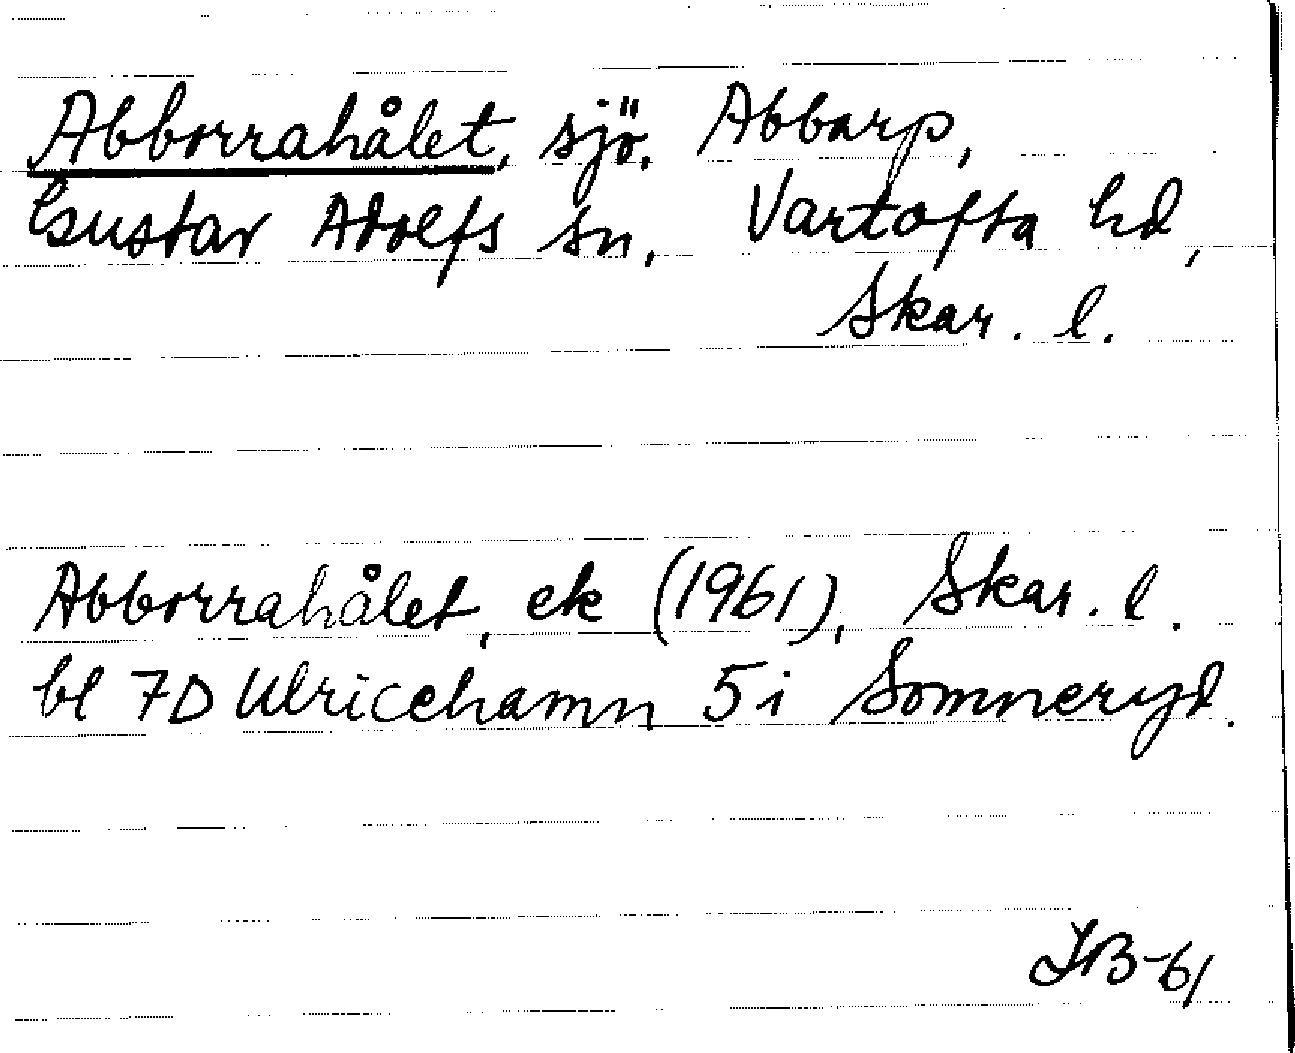 Abborrahålet, sjö. Abbarp,
Gustav Adolfs sn, Vartofta hd,
Skar. l.
Abborrahålet, ek (1961), Skar. l.
bl 7D Ulricehamn 5i Somneryd.
JB-61